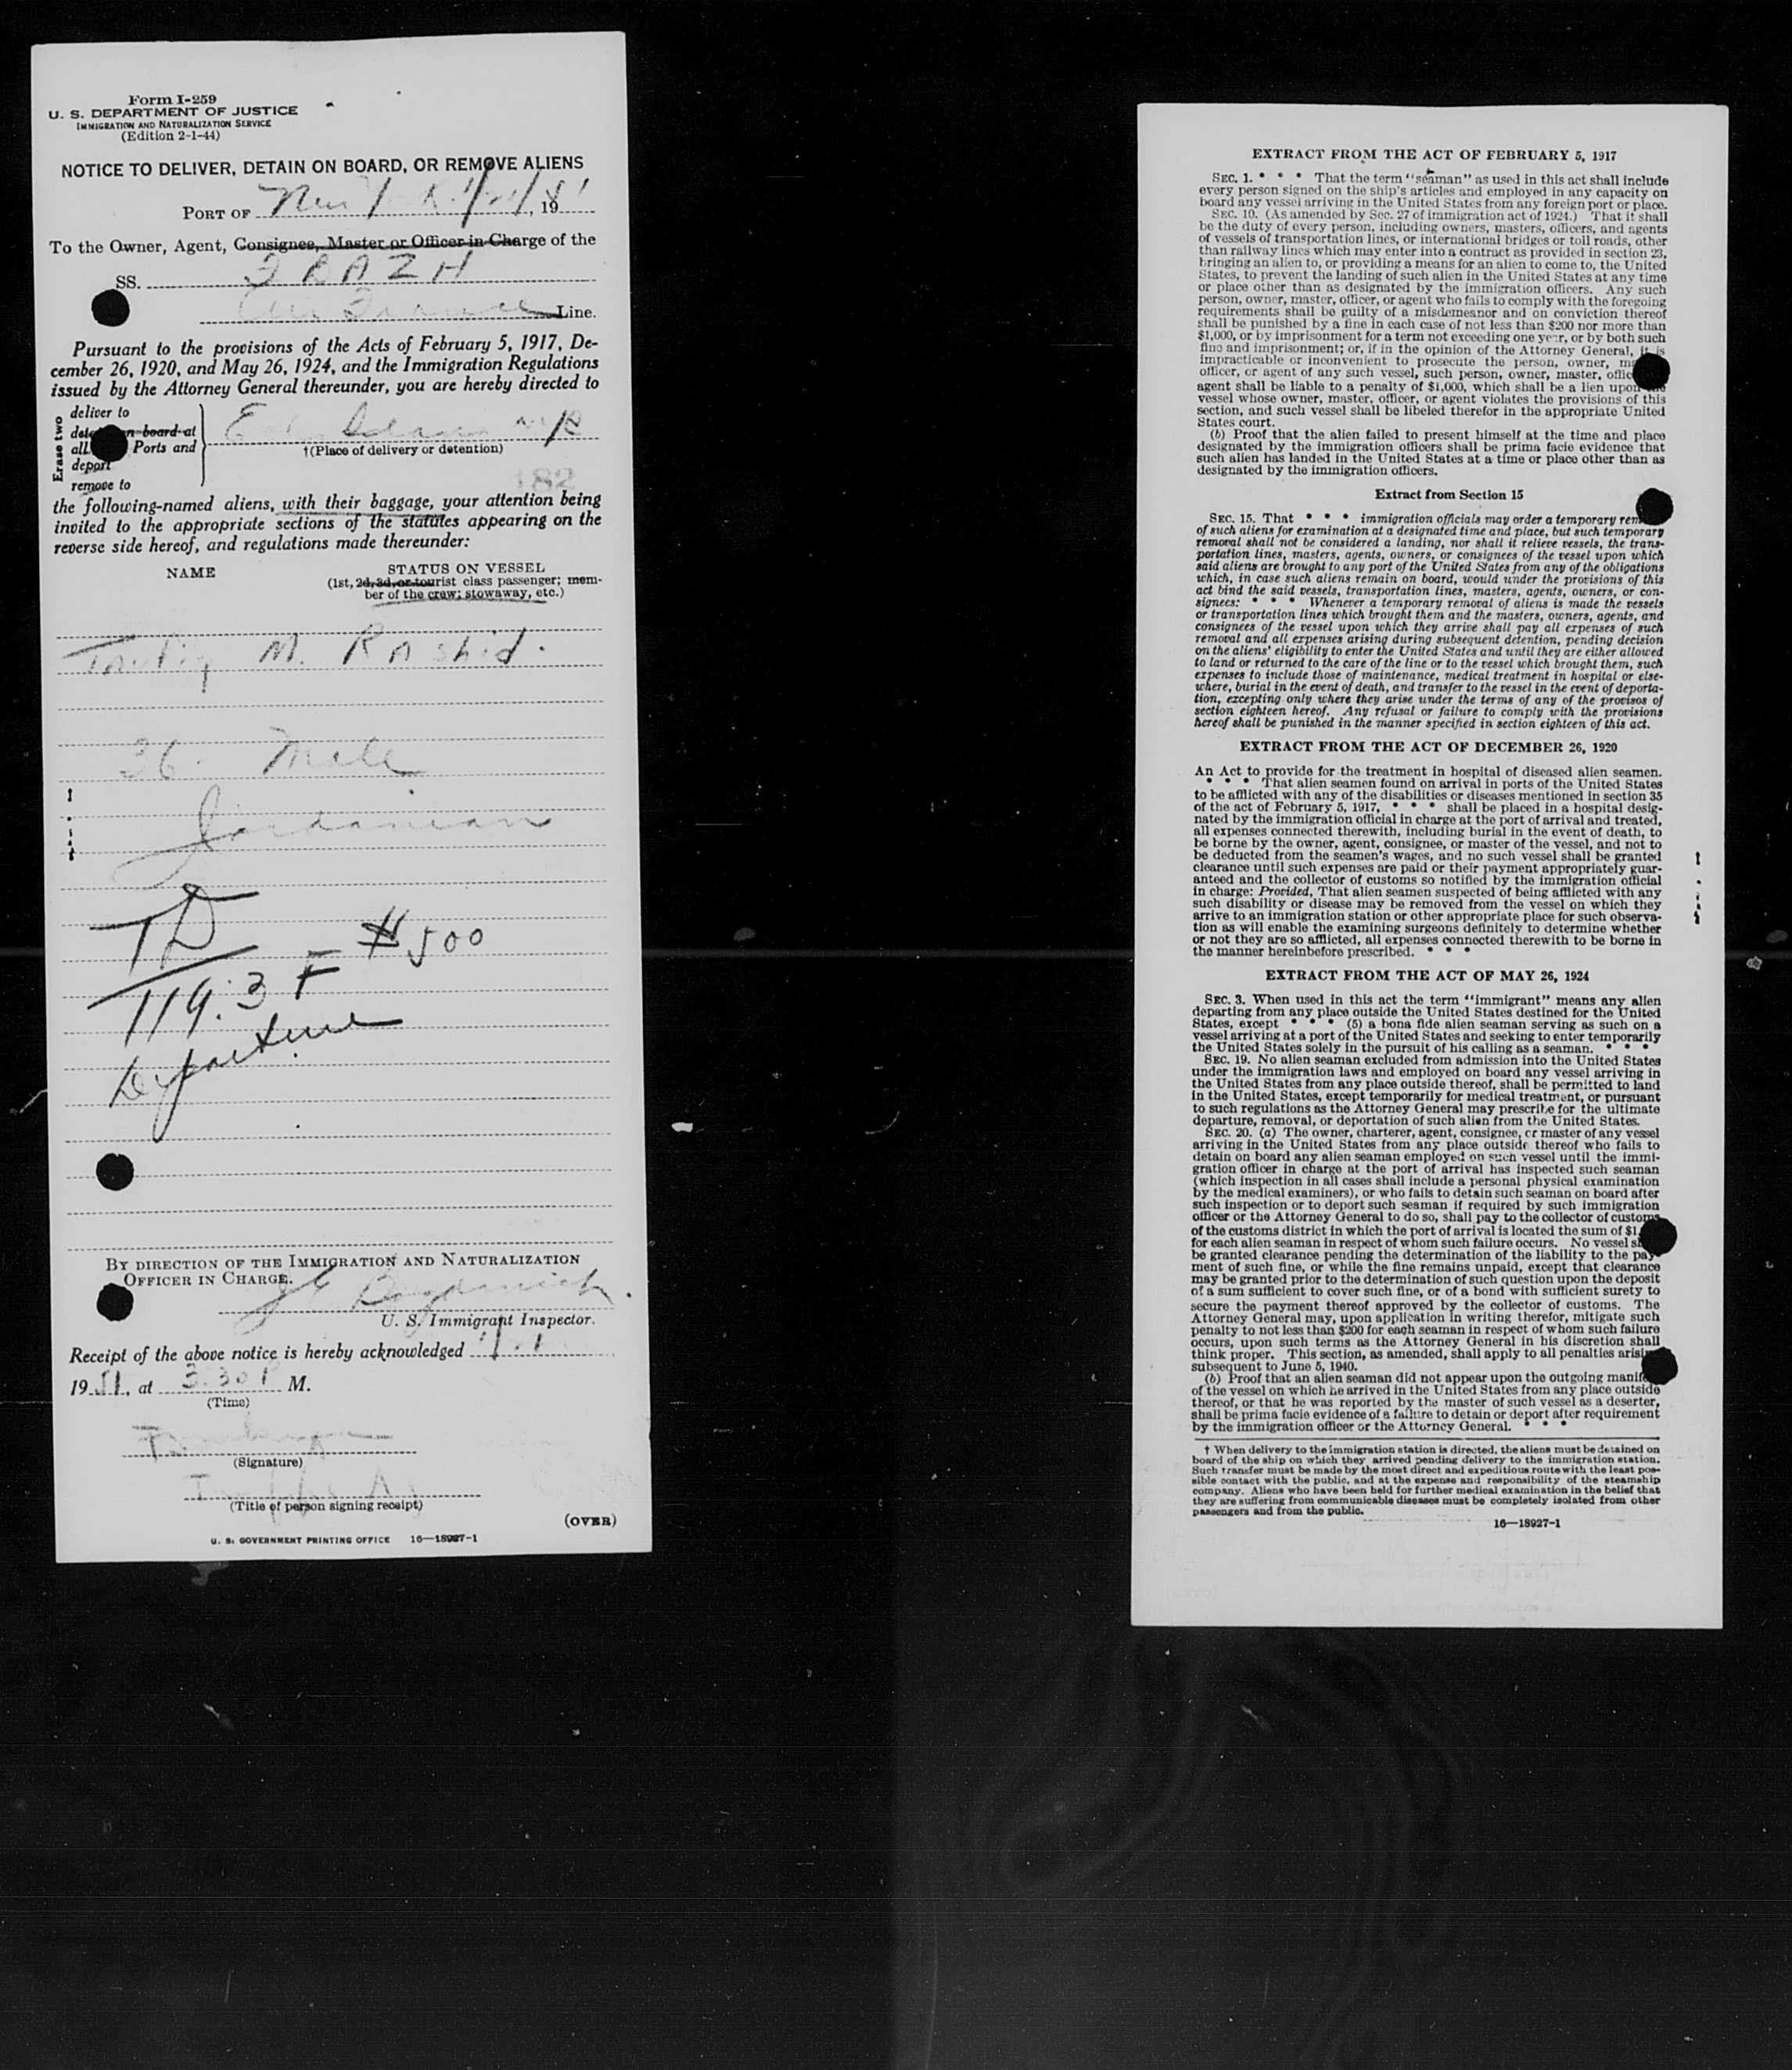 Form I-259
U. S. DEPARTMENT OF JUSTICE
IMMIGRATION AND NATURALIZATION SERVICE
(Edition 2-1-44)
NOTICE TO DELIVER, DETAIN ON BOARD, OR REMOVE ALIENS
PORT OF New, 19
To the Owner, Agent, Consignee, Master or Officer in Charge of the
SS. FRAZH
Air France Line.
Pursuant to the provisions of the Acts of February 5, 1917, De-
cember 26, 1920, and May 26, 1924, and the Immigration Regulations
issued by the Attorney General thereunder, you are hereby directed to
Erase two
deliver to
on board at
all Ports and
deport
remove to
†(Place of delivery or detention)
182
the following-named aliens, with their baggage, your attention being
invited to the appropriate sections of the statutes appearing on the
reverse side hereof, and regulations made thereunder:
NAME
STATUS ON VESSEL
(1st, 2d, 3d, or tourist class passenger; mem-
ber of the crew; stowaway, etc.)
M. RAshid.
26. Male
Jordanian
TD
119.3 F $500
Departure
BY DIRECTION OF THE IMMIGRATION AND NATURALIZATION
OFFICER IN CHARGE.
U. S. Immigrant Inspector.
Receipt of the above notice is hereby acknowledged
1951, at 3.30 P M.
(Time)
(Signature)
(Title of person signing receipt)
(OVER)
U. S. GOVERNMENT PRINTING OFFICE 16—18927-1
EXTRACT FROM THE ACT OF FEBRUARY 5, 1917
SEC. 1. * * * That the term "seaman" as used in this act shall include
every person signed on the ship's articles and employed in any capacity on
board any vessel arriving in the United States from any foreign port or place.
SEC. 10. (As amended by Sec. 27 of immigration act of 1924.) That it shall
be the duty of every person, including owners, masters, officers, and agents
of vessels of transportation lines, or international bridges or toll roads, other
than railway lines which may enter into a contract as provided in section 23,
bringing an alien to, or providing a means for an alien to come to, the United
States, to prevent the landing of such alien in the United States at any time
or place other than as designated by the immigration officers. Any such
person, owner, master, officer, or agent who fails to comply with the foregoing
requirements shall be guilty of a misdemeanor and on conviction thereof
shall be punished by a fine in each case of not less than $200 nor more than
$1,000, or by imprisonment for a term not exceeding one year, or by both such
fine and imprisonment; or, if in the opinion of the Attorney General, it is
impracticable or inconvenient to prosecute the person, owner,
officer, or agent of any such vessel, such person, owner, master,
agent shall be liable to a penalty of $1,000, which shall be a lien upon
vessel whose owner, master, officer, or agent violates the provisions of this
section, and such vessel shall be libeled therefor in the appropriate United
States court.
(b) Proof that the alien failed to present himself at the time and place
designated by the immigration officers shall be prima facie evidence that
such alien has landed in the United States at a time or place other than as
designated by the immigration officers.
Extract from Section 15
SEC. 15. That * * * immigration officials may order a temporary
of such aliens for examination at a designated time and place, but such temporary
removal shall not be considered a landing, nor shall it relieve vessels, the trans-
portation lines, masters, agents, owners, or consignees of the vessel upon which
said aliens are brought to any port of the United States from any of the obligations
which, in case such aliens remain on board, would under the provisions of this
act bind the said vessels, transportation lines, masters, agents, owners, or con-
signees: * * * Whenever a temporary removal of aliens is made the vessels
or transportation lines which brought them and the masters, owners, agents, and
consignees of the vessel upon which they arrive shall pay all expenses of such
removal and all expenses arising during subsequent detention, pending decision
on the aliens' eligibility to enter the United States and until they are either allowed
to land or returned to the care of the line or to the vessel which brought them, such
expenses to include those of maintenance, medical treatment in hospital or else-
where, burial in the event of death, and transfer to the vessel in the event of deporta-
tion, excepting only where they arise under the terms of any of the provisos of
section eighteen hereof. Any refusal or failure to comply with the provisions
hereof shall be punished in the manner specified in section eighteen of this act.
EXTRACT FROM THE ACT OF DECEMBER 26, 1920
An Act to provide for the treatment in hospital of diseased alien seamen.
* * * That alien seamen found on arrival in ports of the United States
to be afflicted with any of the disabilities or diseases mentioned in section 35
of the act of February 5, 1917, * * * shall be placed in a hospital desig-
nated by the immigration official in charge at the port of arrival and treated,
all expenses connected therewith, including burial in the event of death, to
be borne by the owner, agent, consignee, or master of the vessel, and not to
be deducted from the seamen's wages, and no such vessel shall be granted
clearance until such expenses are paid or their payment appropriately guar-
anteed and the collector of customs so notified by the immigration official
in charge: Provided, That alien seamen suspected of being afflicted with any
such disability or disease may be removed from the vessel on which they
arrive to an immigration station or other appropriate place for such observa-
tion as will enable the examining surgeons definitely to determine whether
or not they are so afflicted, all expenses connected therewith to be borne in
the manner hereinbefore prescribed. * * *
EXTRACT FROM THE ACT OF MAY 26, 1924
SEC. 3. When used in this act the term "immigrant" means any alien
departing from any place outside the United States destined for the United
States, except * * * (5) a bona fide alien seaman serving as such on a
vessel arriving at a port of the United States and seeking to enter temporarily
the United States solely in the pursuit of his calling as a seaman. * * *
SEC. 19. No alien seaman excluded from admission into the United States
under the immigration laws and employed on board any vessel arriving in
the United States from any place outside thereof, shall be permitted to land
in the United States, except temporarily for medical treatment, or pursuant
to such regulations as the Attorney General may prescribe for the ultimate
departure, removal, or deportation of such alien from the United States.
SEC. 20. (a) The owner, charterer, agent, consignee, or master of any vessel
arriving in the United States from any place outside thereof who fails to
detain on board any alien seaman employed on such vessel until the immi-
gration officer in charge at the port of arrival has inspected such seaman
(which inspection in all cases shall include a personal physical examination
by the medical examiners), or who fails to detain such seaman on board after
such inspection or to deport such seaman if required by such immigration
officer or the Attorney General to do so, shall pay to the collector of customs
of the customs district in which the port of arrival is located the sum of
for each alien seaman in respect of whom such failure occurs. No vessel
be granted clearance pending the determination of the liability to the pay-
ment of such fine, or while the fine remains unpaid, except that clearance
may be granted prior to the determination of such question upon the deposit
of a sum sufficient to cover such fine, or of a bond with sufficient surety to
secure the payment thereof approved by the collector of customs. The
Attorney General may, upon application in writing therefor, mitigate such
penalty to not less than $200 for each seaman in respect of whom such failure
occurs, upon such terms as the Attorney General in his discretion shall
think proper. This section, as amended, shall apply to all penalties arising
subsequent to June 5, 1940.
(b) Proof that an alien seaman did not appear upon the outgoing
of the vessel on which he arrived in the United States from any place outside
thereof, or that he was reported by the master of such vessel as a deserter,
shall be prima facie evidence of a failure to detain or deport after requirement
by the immigration officer or the Attorney General. * * *
† When delivery to the immigration station is directed, the aliens must be detained on
board of the ship on which they arrived pending delivery to the immigration station.
Such transfer must be made by the most direct and expeditious route with the least pos-
sible contact with the public, and at the expense and responsibility of the steamship
company. Aliens who have been held for further medical examination in the belief that
they are suffering from communicable diseases must be completely isolated from other
passengers and from the public.
16—18927-1